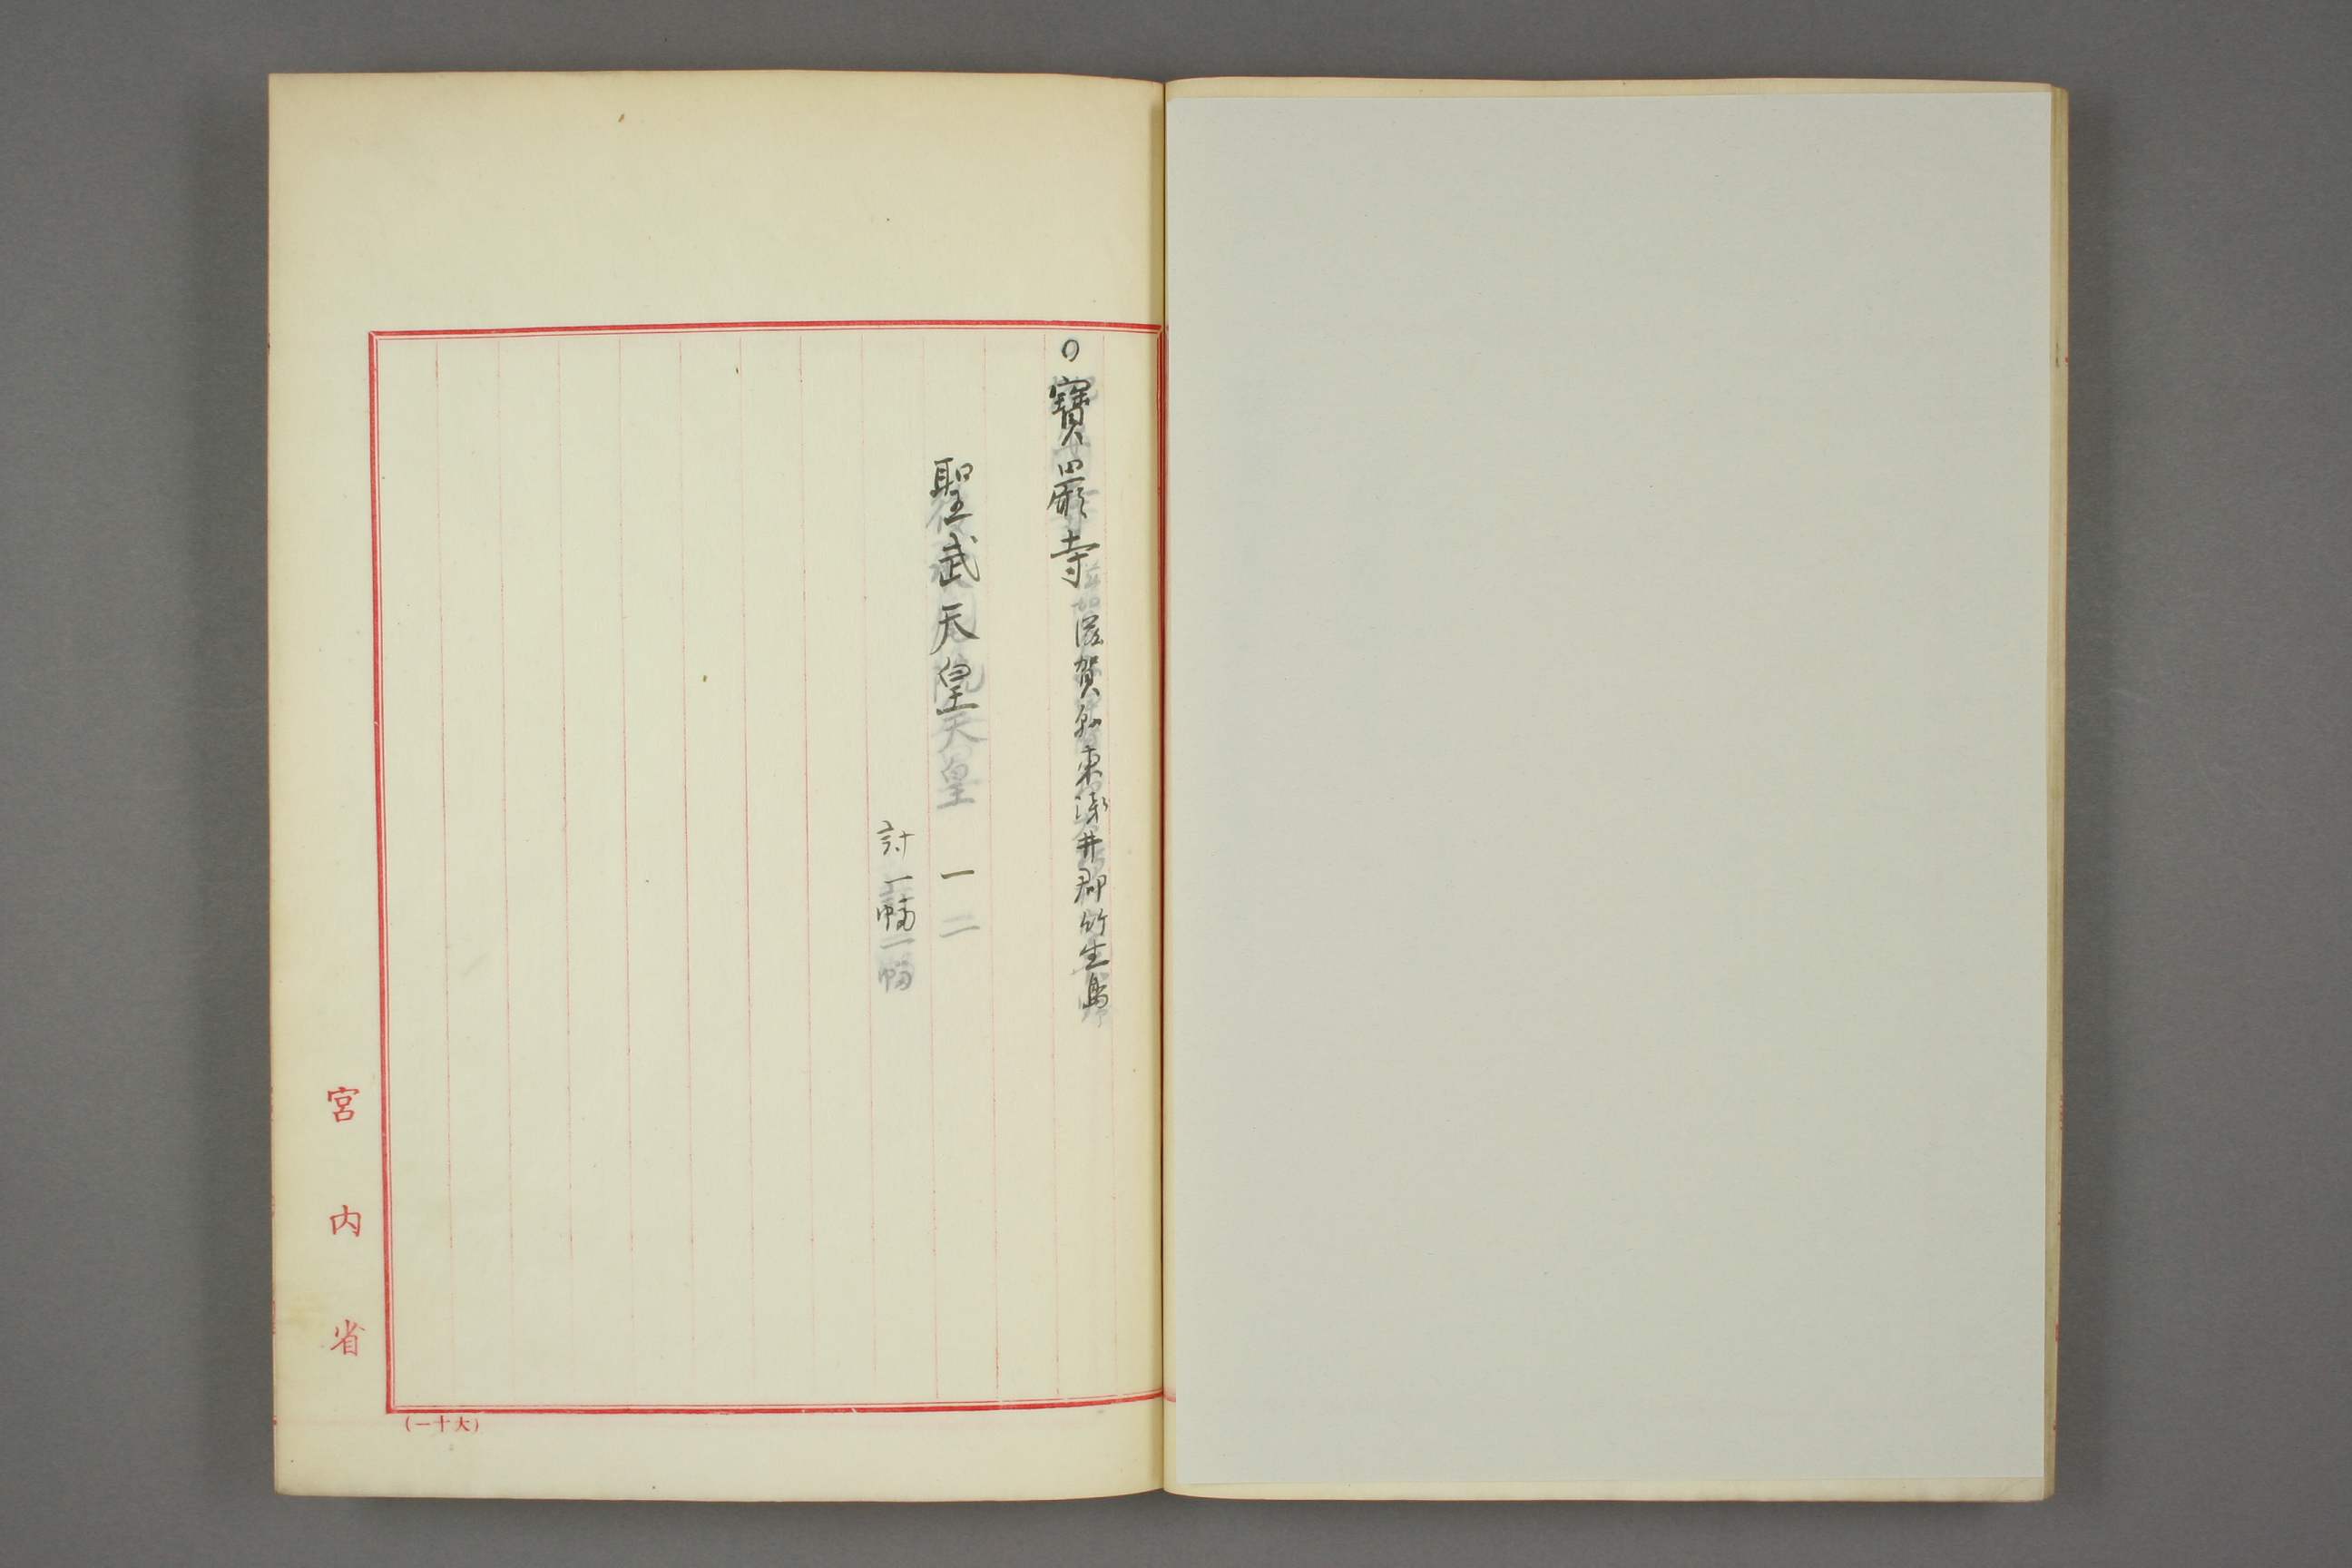 ○寶嚴寺 滋賀縣東淺井郡竹生島
聖武天皇 一
計一幅
宮内省
(大十一)